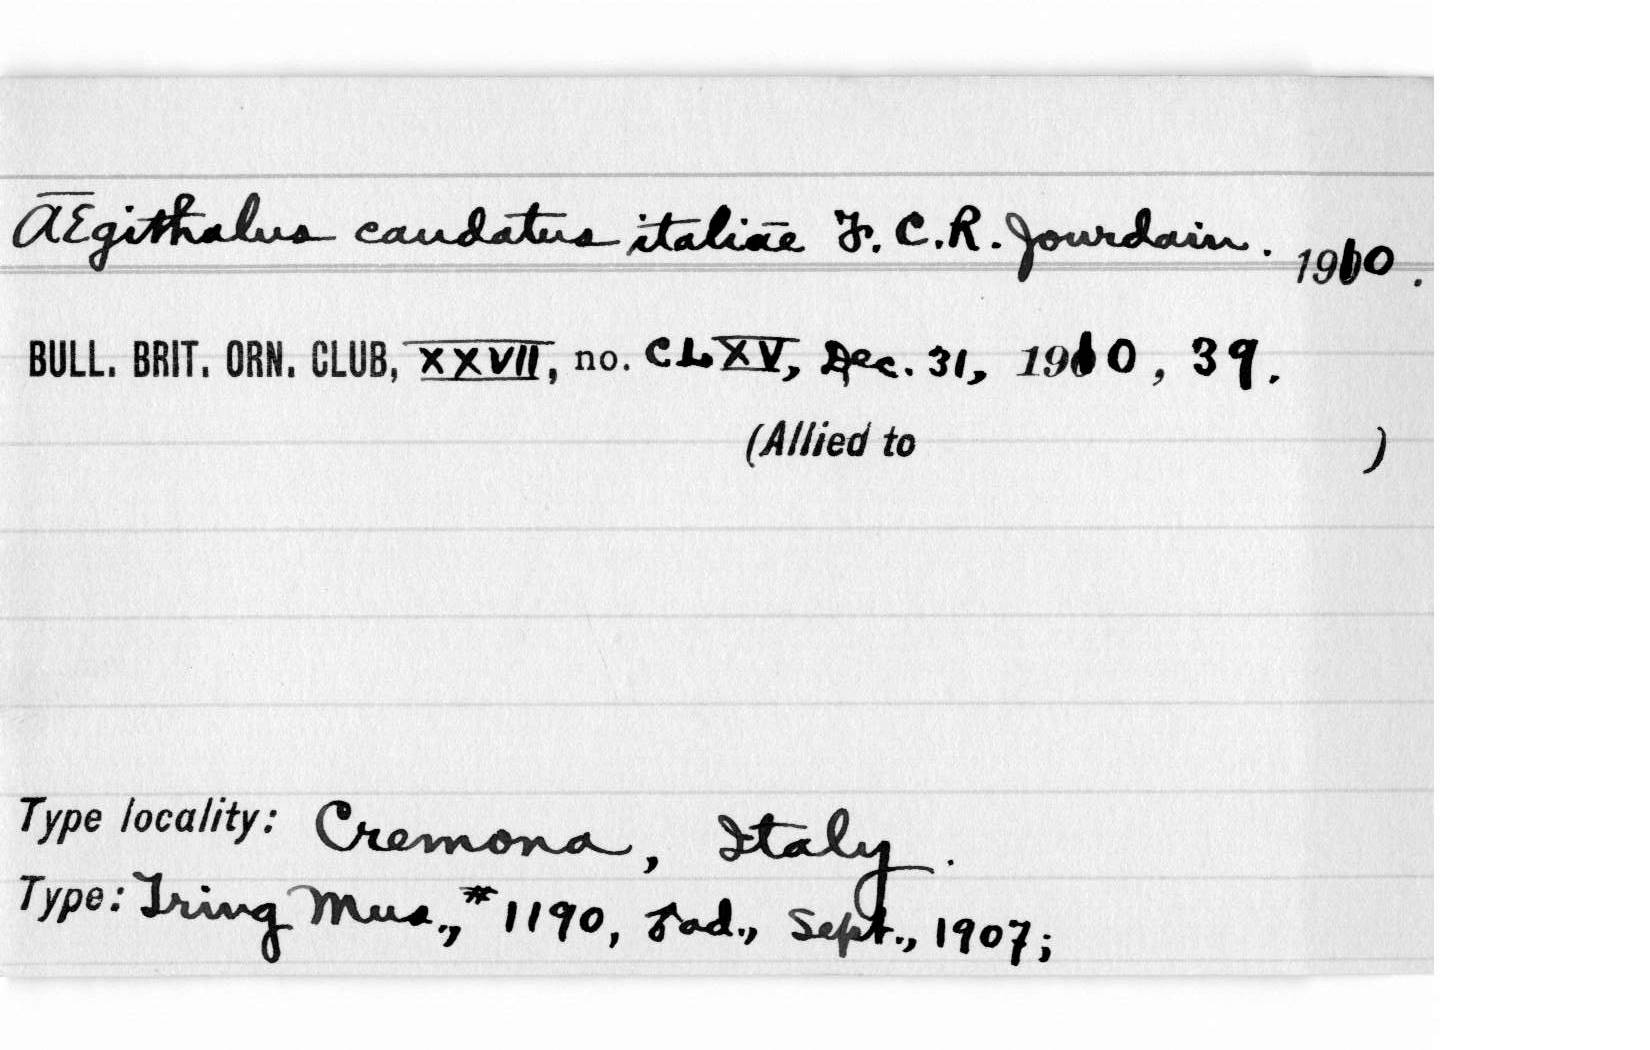 Aegithalus caudatus italiae F. C. R. Jourdain. 1910.
BULL. BRIT. ORN. CLUB, XXVII, no. CLXV, Dec. 31, 1910, 39.
(Allied to )
Type locality: Cremona, Italy.
Type: Tring Mus., #1190, ad., Sept., 1907;